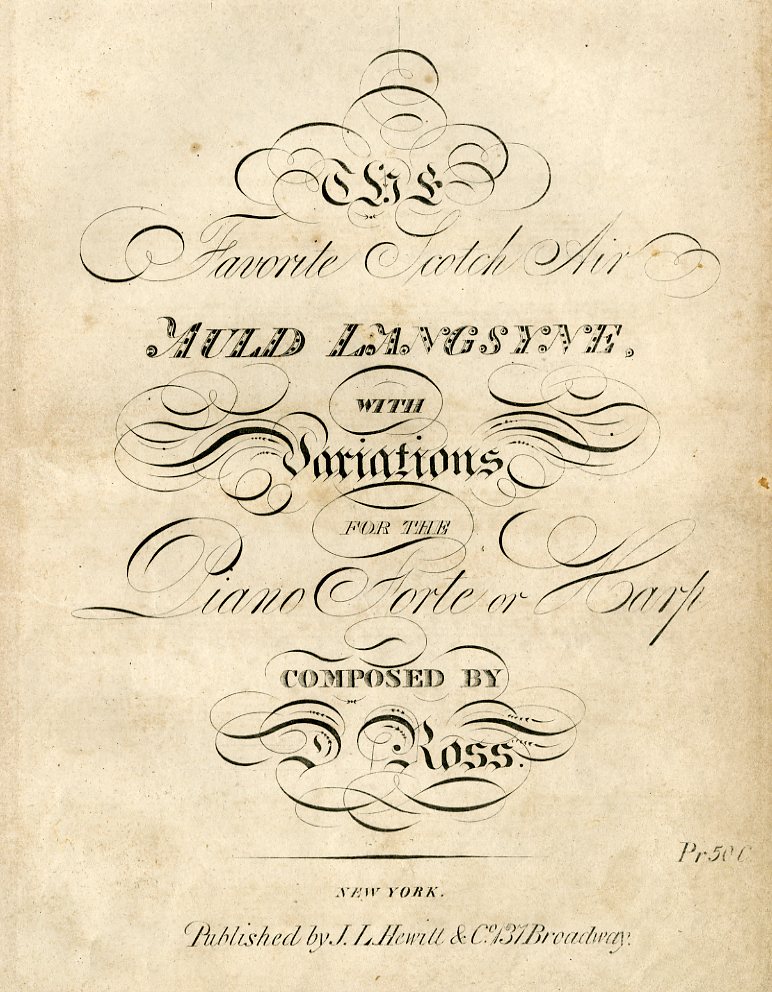 THE
Favorite Scotch Air
AULD LANGSYNE.
WITH
Variations
FOR THE
Piano Forte or Harp
COMPOSED BY
D Ross.
Pr 50 C
NEW YORK.
Published by J. L. Hewitt & Co. 137 Broadway.